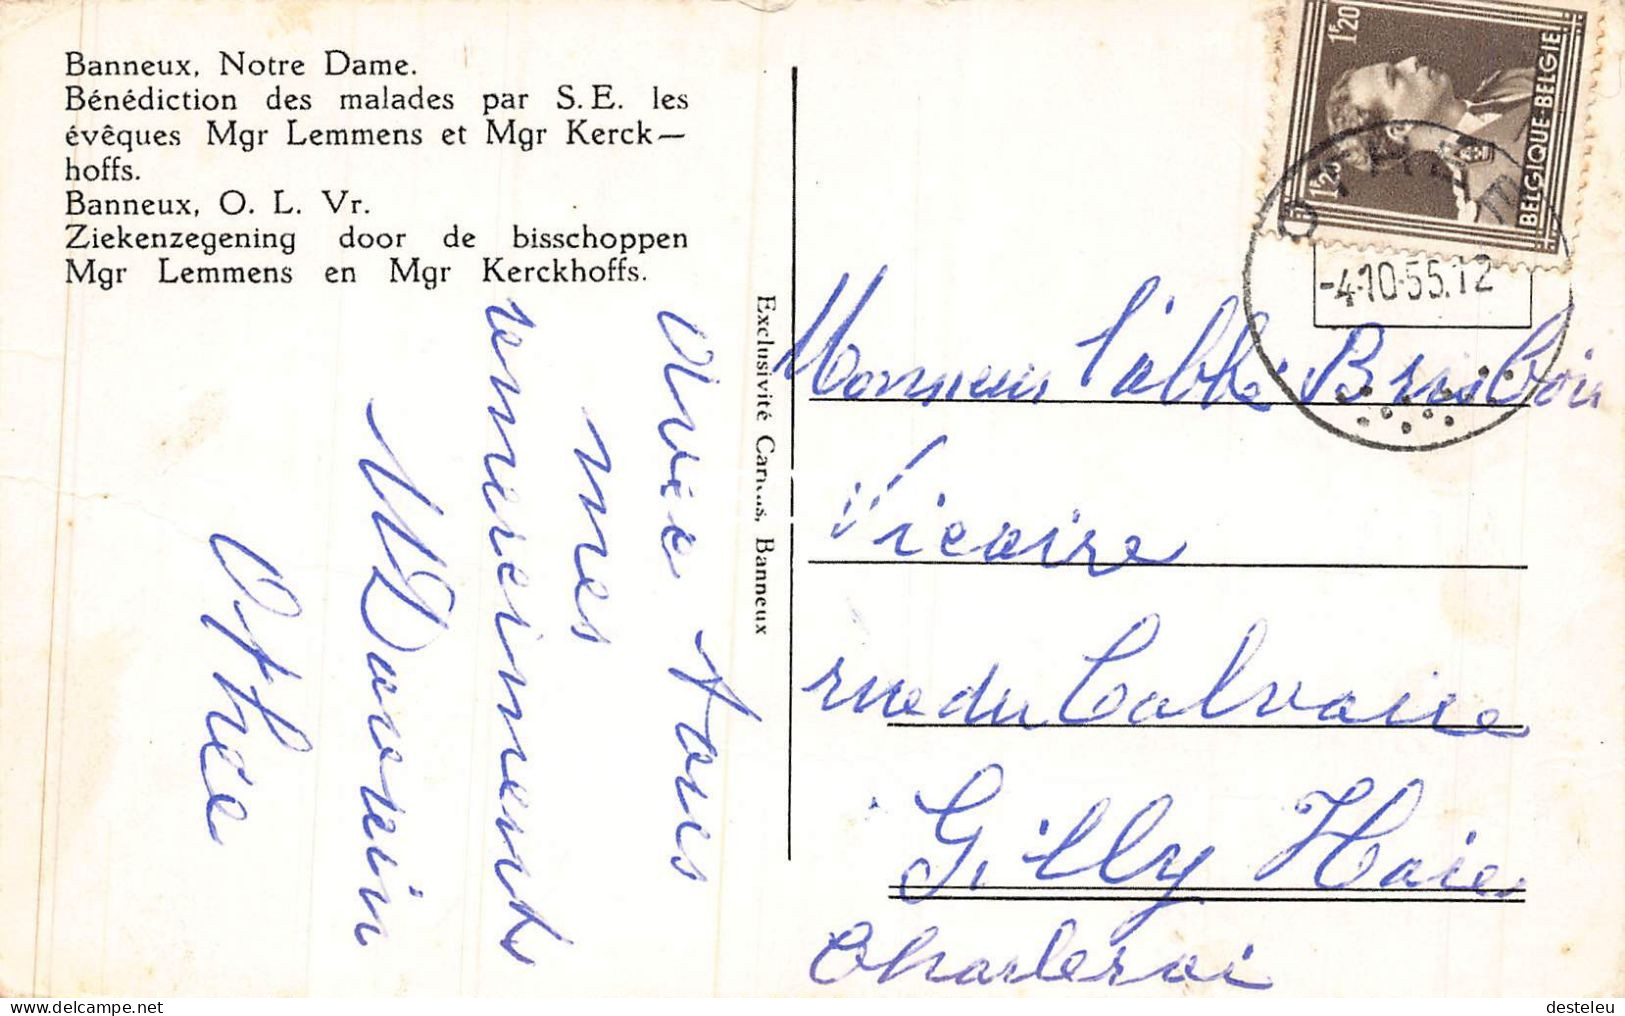 Banneux, Notre Dame.
Bénédiction des malades par S.E. les
évêques Mgr Lemmens et Mgr Kerck—
hoffs.
Banneux, O. L. Vr.
Ziekenzegening door de bisschoppen
Mgr Lemmens en Mgr Kerckhoffs.
Avec tous
mes
remerciements
Othée
Exclusivité Carmes, Banneux
1F20
1F20
BELGIQUE-BELGIE
OTHEE
-4-10-55.12
Monsieur l'abbé Brisbois
Vicaire
rue du Calvaire
Gilly Haies
Charleroi
desteleu